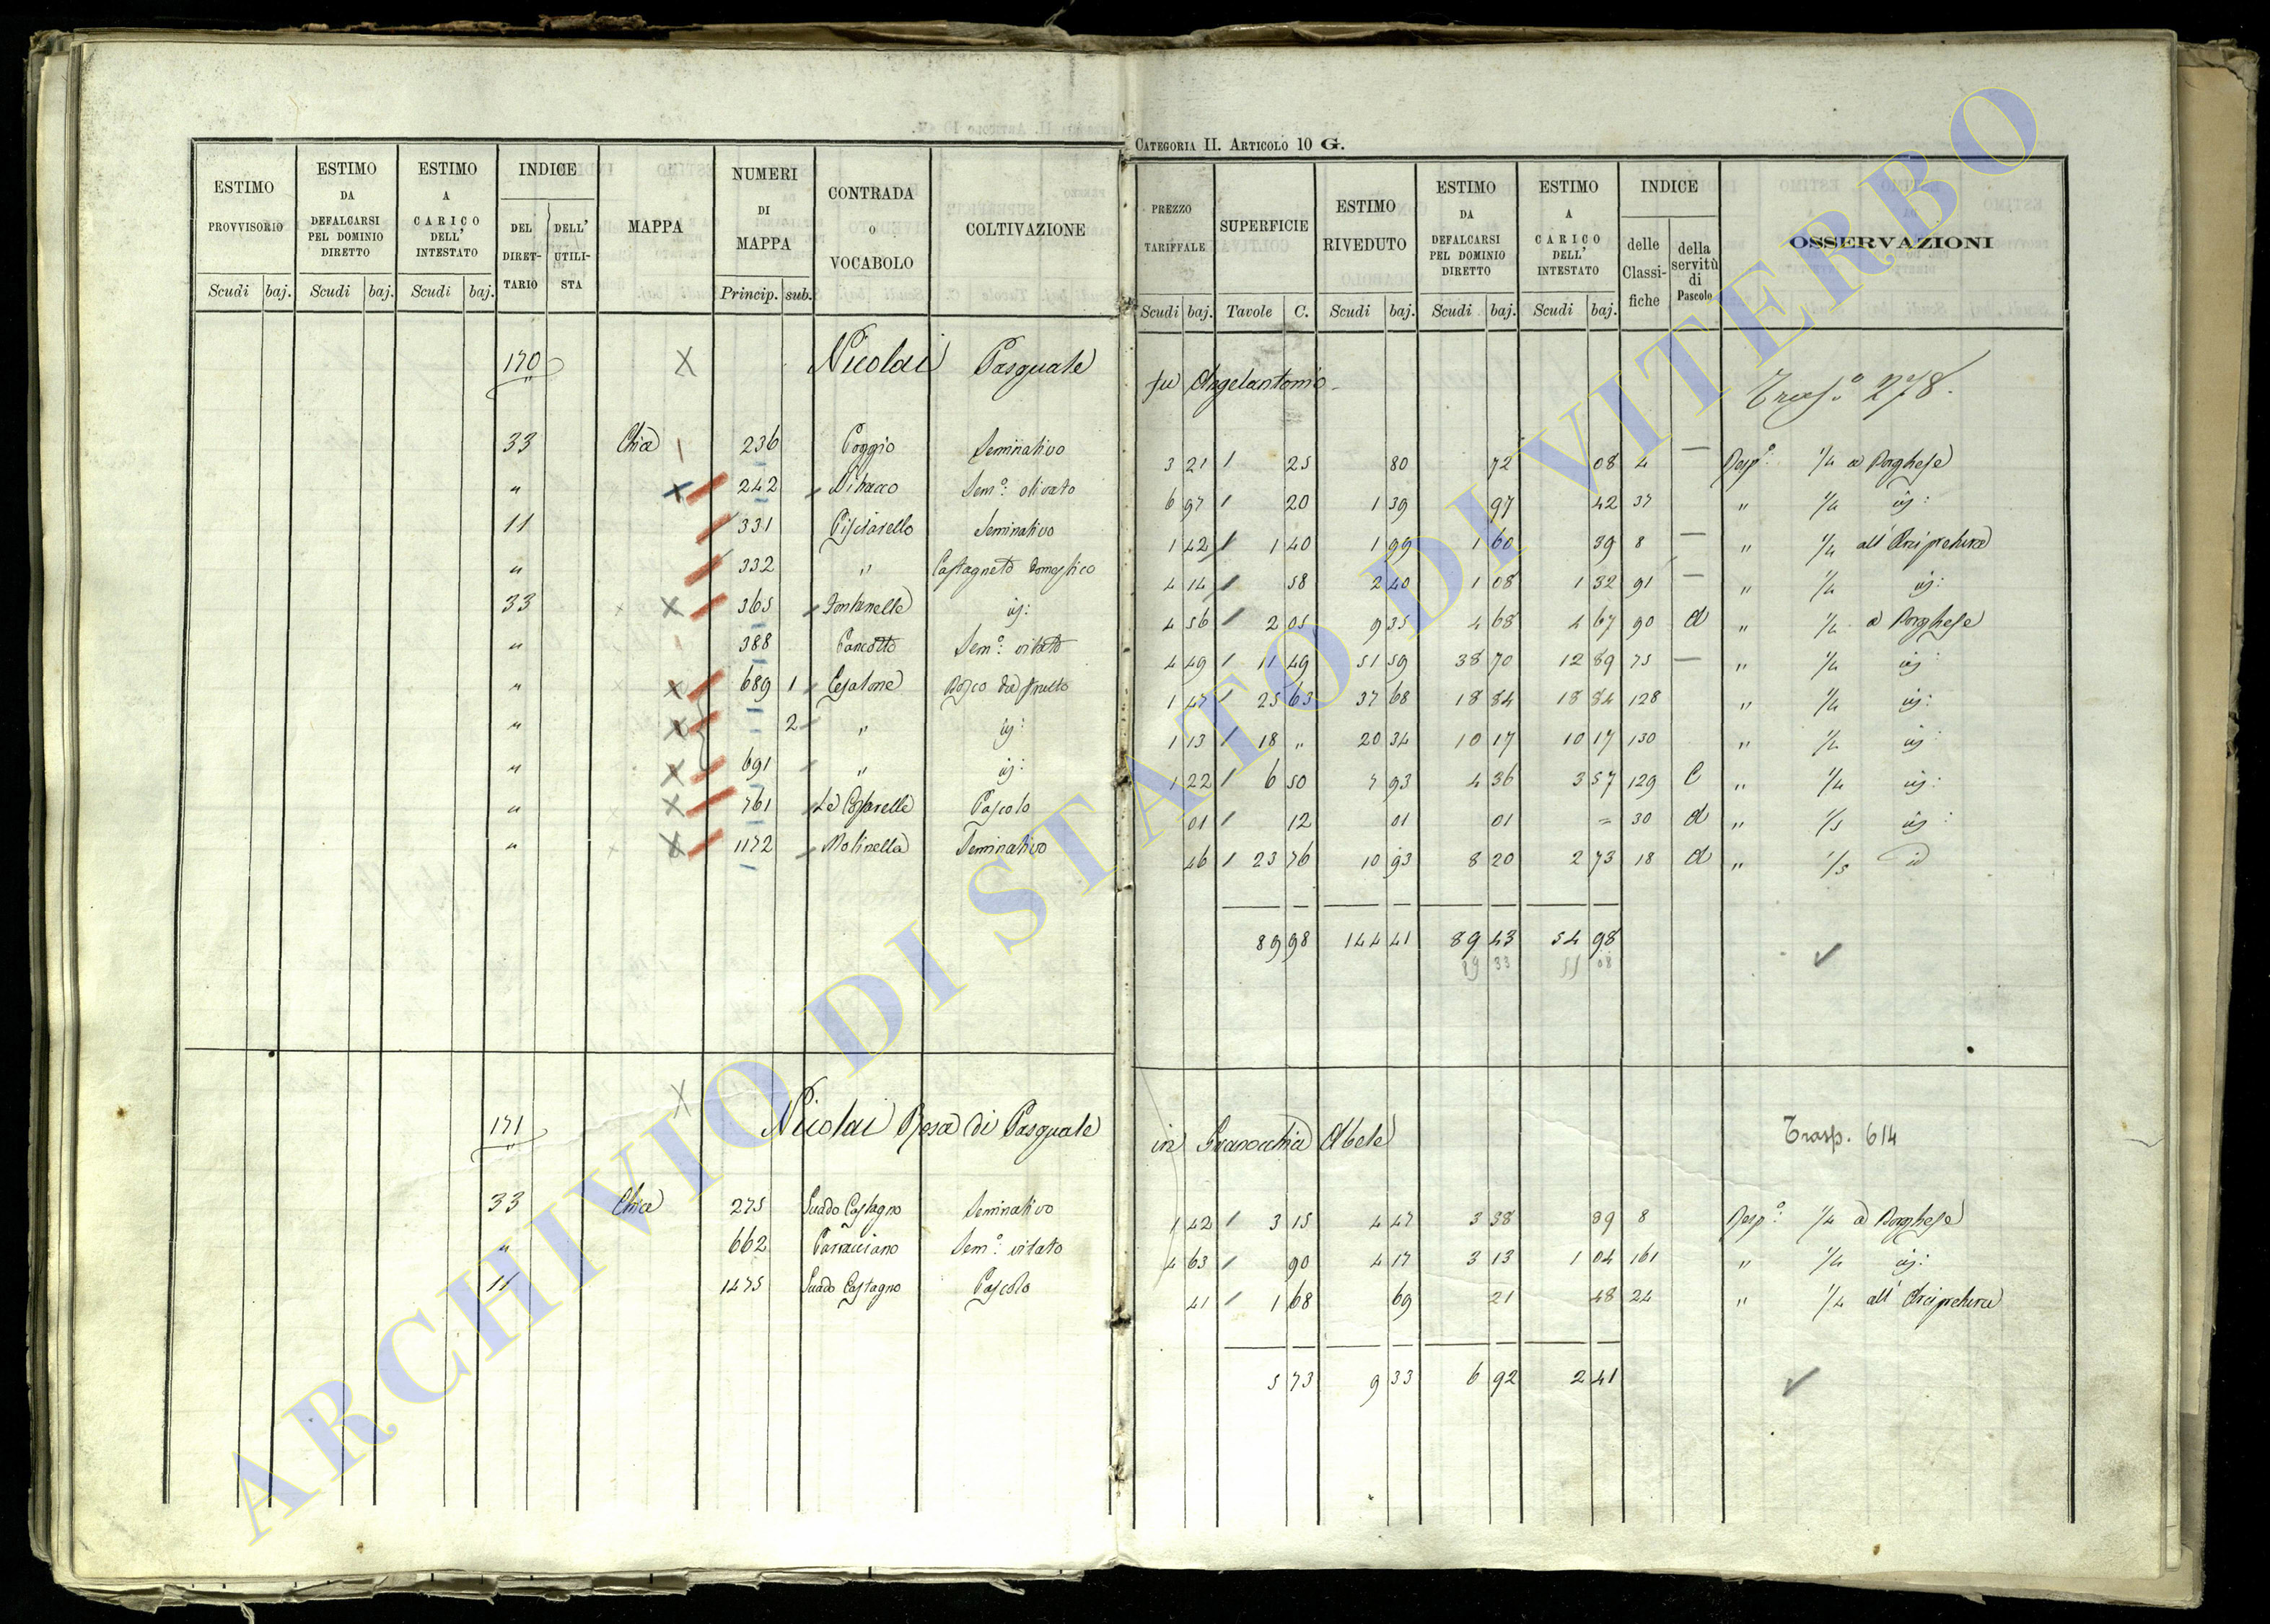 CATEGORIA II. ARTICOLO 10 G.
ESTIMO PROVVISORIO | ESTIMO DA DEFALCARSI PEL DOMINIO DIRETTO | ESTIMO A CARICO DELL' INTESTATO | INDICE DEL DIRETTARIO | DELL' UTILISTA | MAPPA | NUMERI DI MAPPA | CONTRADA O VOCABOLO | COLTIVAZIONE | PREZZO TARIFFALE | SUPERFICIE | ESTIMO RIVEDUTO | ESTIMO DA DEFALCARSI PEL DOMINIO DIRETTO | ESTIMO A CARICO DELL' INTESTATO | INDICE delle Classifiche | della servitù di Pascolo | OSSERVAZIONI
Scudi baj. Scudi baj. Scudi baj. Princip. sub. Scudi baj. Tavole C. Scudi baj. Scudi baj. Scudi baj.
170 X Nicolai Pasquale fu Angelantonio Trasp.o 278.
33 Chia 236 Poggio Seminativo 3 21 1 25 80 72 08 4 — Resp.o: 1/4 a Borghese
" 242 Sem.o: olivato 6 97 1 20 1 39 97 42 37 " 1/4 id:
11 331 Pisciarello Seminativo 1 42 1 1 40 1 99 1 60 39 8 — " 1/4 all'Arcipretura
" 332 " Castagneto domestico 4 14 1 58 2 40 1 08 1 32 91 — " 1/4 id:
33 X 365 Fontanelle id: 4 56 1 2 05 9 35 4 68 4 67 90 d " 1/4 a Borghese
" 388 Pancotto Sem.o: vitato 4 49 1 11 49 51 59 38 70 12 89 75 — " 1/4 id:
" X 689 1 Cesalone Bosco da frutto 1 47 1 25 63 37 68 18 84 18 84 128 " 1/4 id:
" X 2 " id: 1 13 1 18 " 20 34 10 17 10 17 130 " 1/4 id:
" X 691 " id: 1 22 1 6 50 7 93 4 36 3 57 129 C " 1/4 id:
" X 761 Pascolo 01 1 12 01 01 = 30 d " 1/5 id:
" X 1172 Molinella Seminativo 46 1 23 76 10 93 8 20 2 73 18 d " 1/5 id
89 98 144 41 89 43 54 98
89 33 55 08
171 X Nicolai Rosa di Pasquale in Granocchia Abele Trasp. 614
33 Chia 275 Guado Castagno Seminativo 1 42 1 3 15 4 47 3 58 89 8 Resp.o: 1/4 a Borghese
" 662 Parracciano Sem.o: vitato 4 63 1 90 4 17 3 13 1 04 161 " 1/4 id:
11 1475 Guado Castagno Pascolo 41 1 1 68 69 21 48 24 " 1/4 all'Arcipretura
5 73 9 33 6 92 2 41
ARCHIVIO DI STATO DI VITERBO